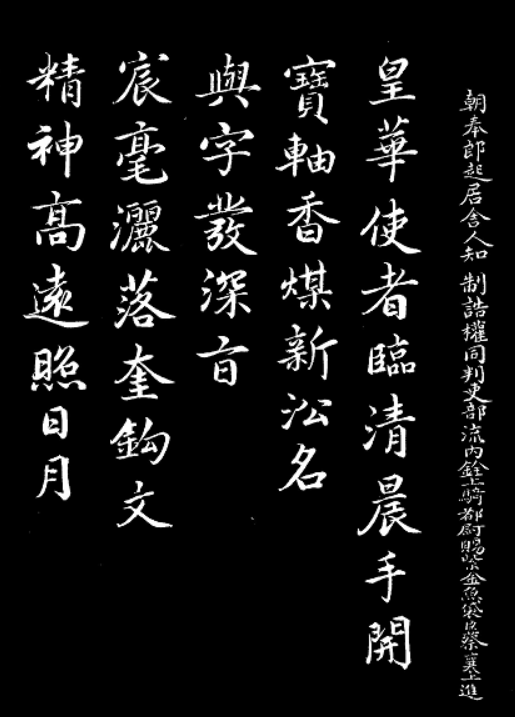 朝奉郎起居舍人知　制誥權同判吏部流内銓上騎都尉賜紫金魚袋臣蔡襄上進
皇華使者臨清晨手開
寶軸香煤新沿名
與字發深旨
宸毫灑落奎鈎文
精神高遠照日月